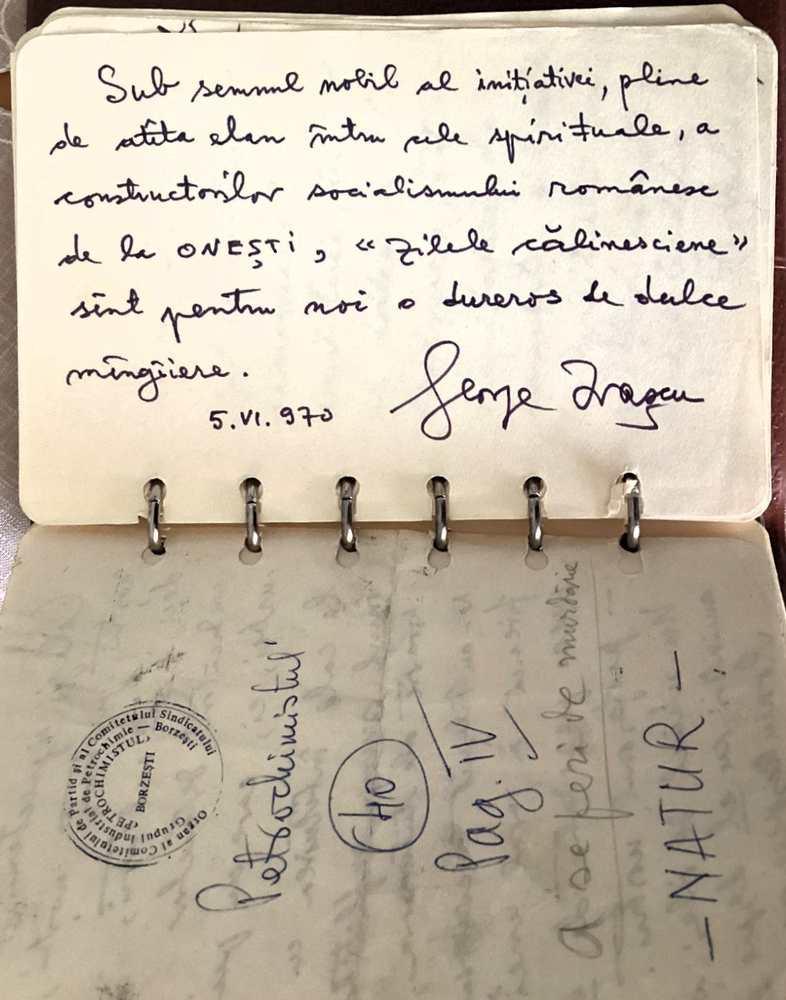 Sub semnul nobil al inițiativei, pline
de atîta elan întru cele spirituale, a
constructorilor socialismului românesc
de la ONEȘTI, « zilele călinesciene »
sînt pentru noi o dureros de dulce
mîngîiere.
5.VI.970
George Ivașcu
Organ al Comitetului de Partid și al Comitetului Sindicatului
Grupul industrial de Petrochimie — Borzești
«PETROCHIMISTUL»
BORZEȘTI
Petrochimistul
40
Pag. IV
a se feri de murdărie
— NATUR —